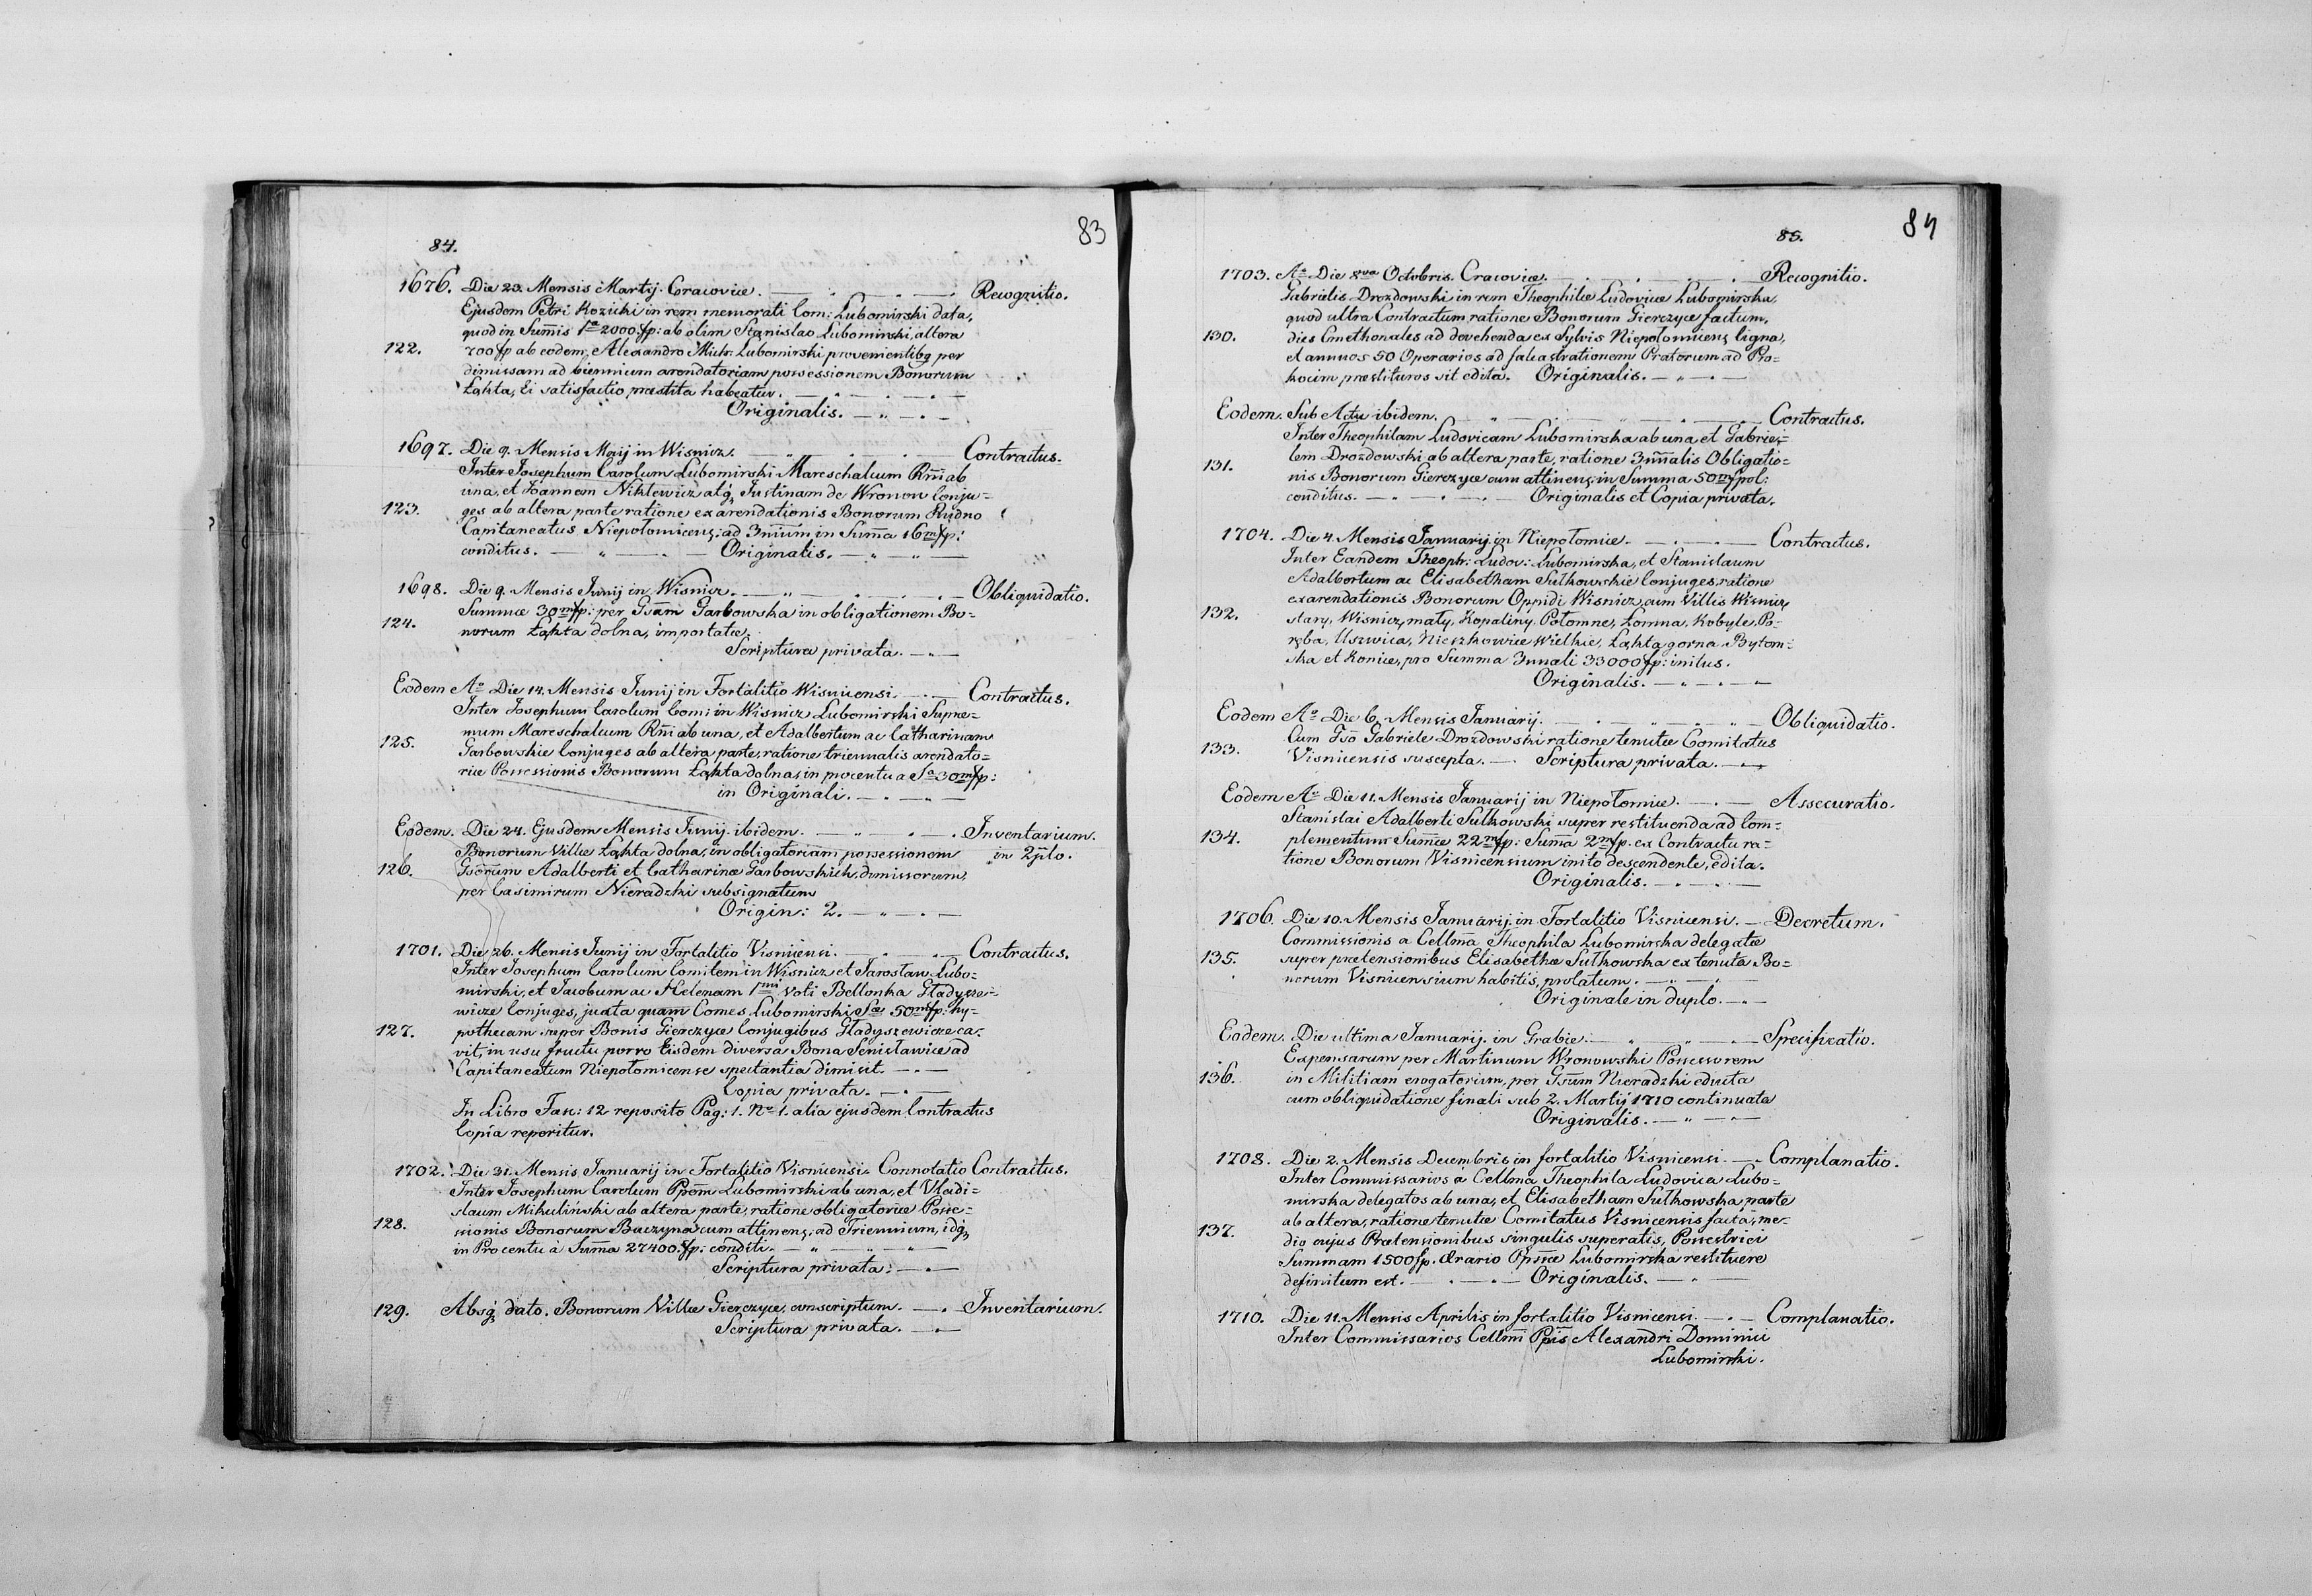 83
84.
1676. Die 23. Mensis Martij. Cracoviæ. Recognitio.
Ejusdem Petri Kozicki in rem memorati Com: Lubomirski data,
quod in Summis 1ª 2000 fp: ab olim Stanislao Lubomirski, altera
122. 700 fp ab eodem Alexandro Mich: Lubomirski provenientibq per
dimissam ad biennium arendatoriam possessionem Bonorum
Łąkta, Ei satisfactio præstita habeatur.
Originalis.
1697. Die 9. Mensis Maij in Wisnicz. Contractus.
Inter Josephum Carolum Lubomirski Mareschalcum Rñi ab
una, et Joannem Niklewicz atq, Justinam de Wronow Conju=
123. ges ab altera parte ratione exarendationis Bonorum Rudno
Capitaneatus Niepołomicens: ad 3nnium in Summa 16 m/fp:
conditus. Originalis.
1698. Die 9. Mensis Junij in Wisnicz. Obliquidatio.
Summæ 30 m/fp: per Gsam Garbowska in obligationem Bo=
124. norum Łąkta dolna, importatæ.
Scriptura privata.
Eodem Aº Die 14. Mensis Junij in Fortalitio Wisnicensi. Contractus.
Inter Josephum Carolum Com: in Wisnicz Lubomirski Supre=
mum Mareschalcum Rñi ab una, et Adalbertum ac Catharinam
125. Garbowskie Conjuges ab altera parte, ratione triennalis arendato=
riæ Possessionis Bonorum Łąkta dolna, in procentu a Sª 30 m/fp:
in Originali.
Eodem. Die 24. Ejusdem Mensis Junij ibidem. Inventarium.
Bonorum Villæ Łąkta dolna, in obligatoriam possessionem in 2plo.
126. Gsorum Adalberti et Catharinæ Garbowskich, dimissorum,
per Casimirum Nieradzki subsignatum
Origin: 2.
1701. Die 26. Mensis Junij in Fortalitio Visnicensi. Contractus.
Inter Josephum Carolum Comitem in Wisnicz et Jarosław Lubo=
mirski, et Jacobum ac Helenam 1mi voti Bellonka Gładysze=
wicze Conjuges, juxta quam Comes Lubomirski Sæ 50 m/fp: hy=
127. pothecam super Bonis Gierczyce Conjugibus Gładyszewicze ca=
vit, in usu fructu porro Eisdem diversa Bona Senisławice ad
Capitaneatum Niepołomicense spectantia dimisit.
Copia privata.
In Libro Fasc: 12 reposito Pag: 1. Nº 1. alia ejusdem Contractus
Copia reperitur.
1702. Die 31. Mensis Januarij in Fortalitio Visnicensi. Connotatio Contractus.
Inter Josephum Carolum Ppem Lubomirski ab una, et Vladi=
slaum Mikuliński ab altera parte, ratione obligatoriæ Posse=
128. ssionis Bonorum Buczyna cum attinens, ad Triennium, idq,
in Procentu à Summa 27400 fp: conditi.
Scriptura privata.
129. Absq, dato. Bonorum Villæ Gierczyce, conscriptum. Inventarium.
Scriptura privata.
84
85.
1703. Aº Die 8va Octobris. Cracoviæ. Recognitio.
Gabrielis Drozdowski in rem Theophilæ Ludovicæ Lubomirska,
quod ultra Contractum, ratione Bonorum Gierczyce factum,
130. dies Cmethonales ad dovehenda ex Sylvis Niepołomicens ligna,
et annuos 50 Operarios ad falcastrationem Pratorum ad Pro=
kocim præstituros sit edita. Originalis.
Eodem. Sub Actu ibidem. Contractus.
Inter Theophilam Ludovicam Lubomirska ab una et Gabrie=
131. lem Drozdowski ab altera parte, ratione 3nnalis Obligatio=
nis Bonorum Gierczyce cum attinens, in Summa 50 m/pol:
conditus. Originalis et Copia privata.
1704. Die 4. Mensis Januarij in Niepołomice. Contractus.
Inter Eandem Theoph: Ludov: Lubomirska, et Stanislaum
Adalbertum ac Elisabetham Sułkowskie Conjuges, ratione
exarendationis Bonorum Oppidi Wisnicz, cum Villis Wisnicz
132. stary, Wisnicz mały, Kopaliny, Połomne, Łomna, Kobyle, Po=
ręba, Uszwica, Nieszkowice Wielkie, Łąkta gorna Bytom=
ska et Konice, pro Summa 3nnali 33000 fp: initus.
Originalis.
Eodem Aº Die 6. Mensis Januarij. Obliquidatio.
Cum Gso Gabriele Drozdowski ratione tenutæ Comitatus
133. Visnicensis suscepta. Scriptura privata.
Eodem Aº Die 11. Mensis Januarij in Niepołomice. Assecuratio.
Stanislai Adalberti Sułkowski super restituenda ad Com=
134. plementum Summæ 22 m/fp: Summa 2 m/fp. ex Contractu ra=
tione Bonorum Visnicensium inito descendente, edita.
Originalis.
1706. Die 10. Mensis Januarij in Fortalitio Visnicensi. Decretum.
Commissionis a Cellma Theophila Lubomirska delegatæ
135. super prætensionibus Elisabethæ Sułkowska ex tenuta Bo=
norum Visnicensium habitis, prolatum.
Originale in duplo.
Eodem. Die ultima Januarij. in Grabie. Specificatio.
Expensarum per Martinum Wronowski Possessorem
136. in Militiam erogatorum, per Gsum Nieradzki educta
cum obliquidatione finali sub 2. Martij 1710 continuata
Originalis.
1708. Die 2. Mensis Decembris in fortalitio Visnicensi. Complanatio.
Inter Commissarios à Cellma Theophila Ludovica Lubo=
mirska delegatos ab una, et Elisabetham Sułkowska, parte
ab altera, ratione tenutæ Comitatus Visnicensis facta, me=
137. dio cujus Prætensionibus singulis superatis, Possestrici
Summam 1500 fp. Ærario Ppssæ Lubomirska restituere
definitum est. Originalis.
1710. Die 11. Mensis Aprilis in fortalitio Visnicensi. Complanatio.
Inter Commissarios Cellmi Ppis Alexandri Dominici
Lubomirski.